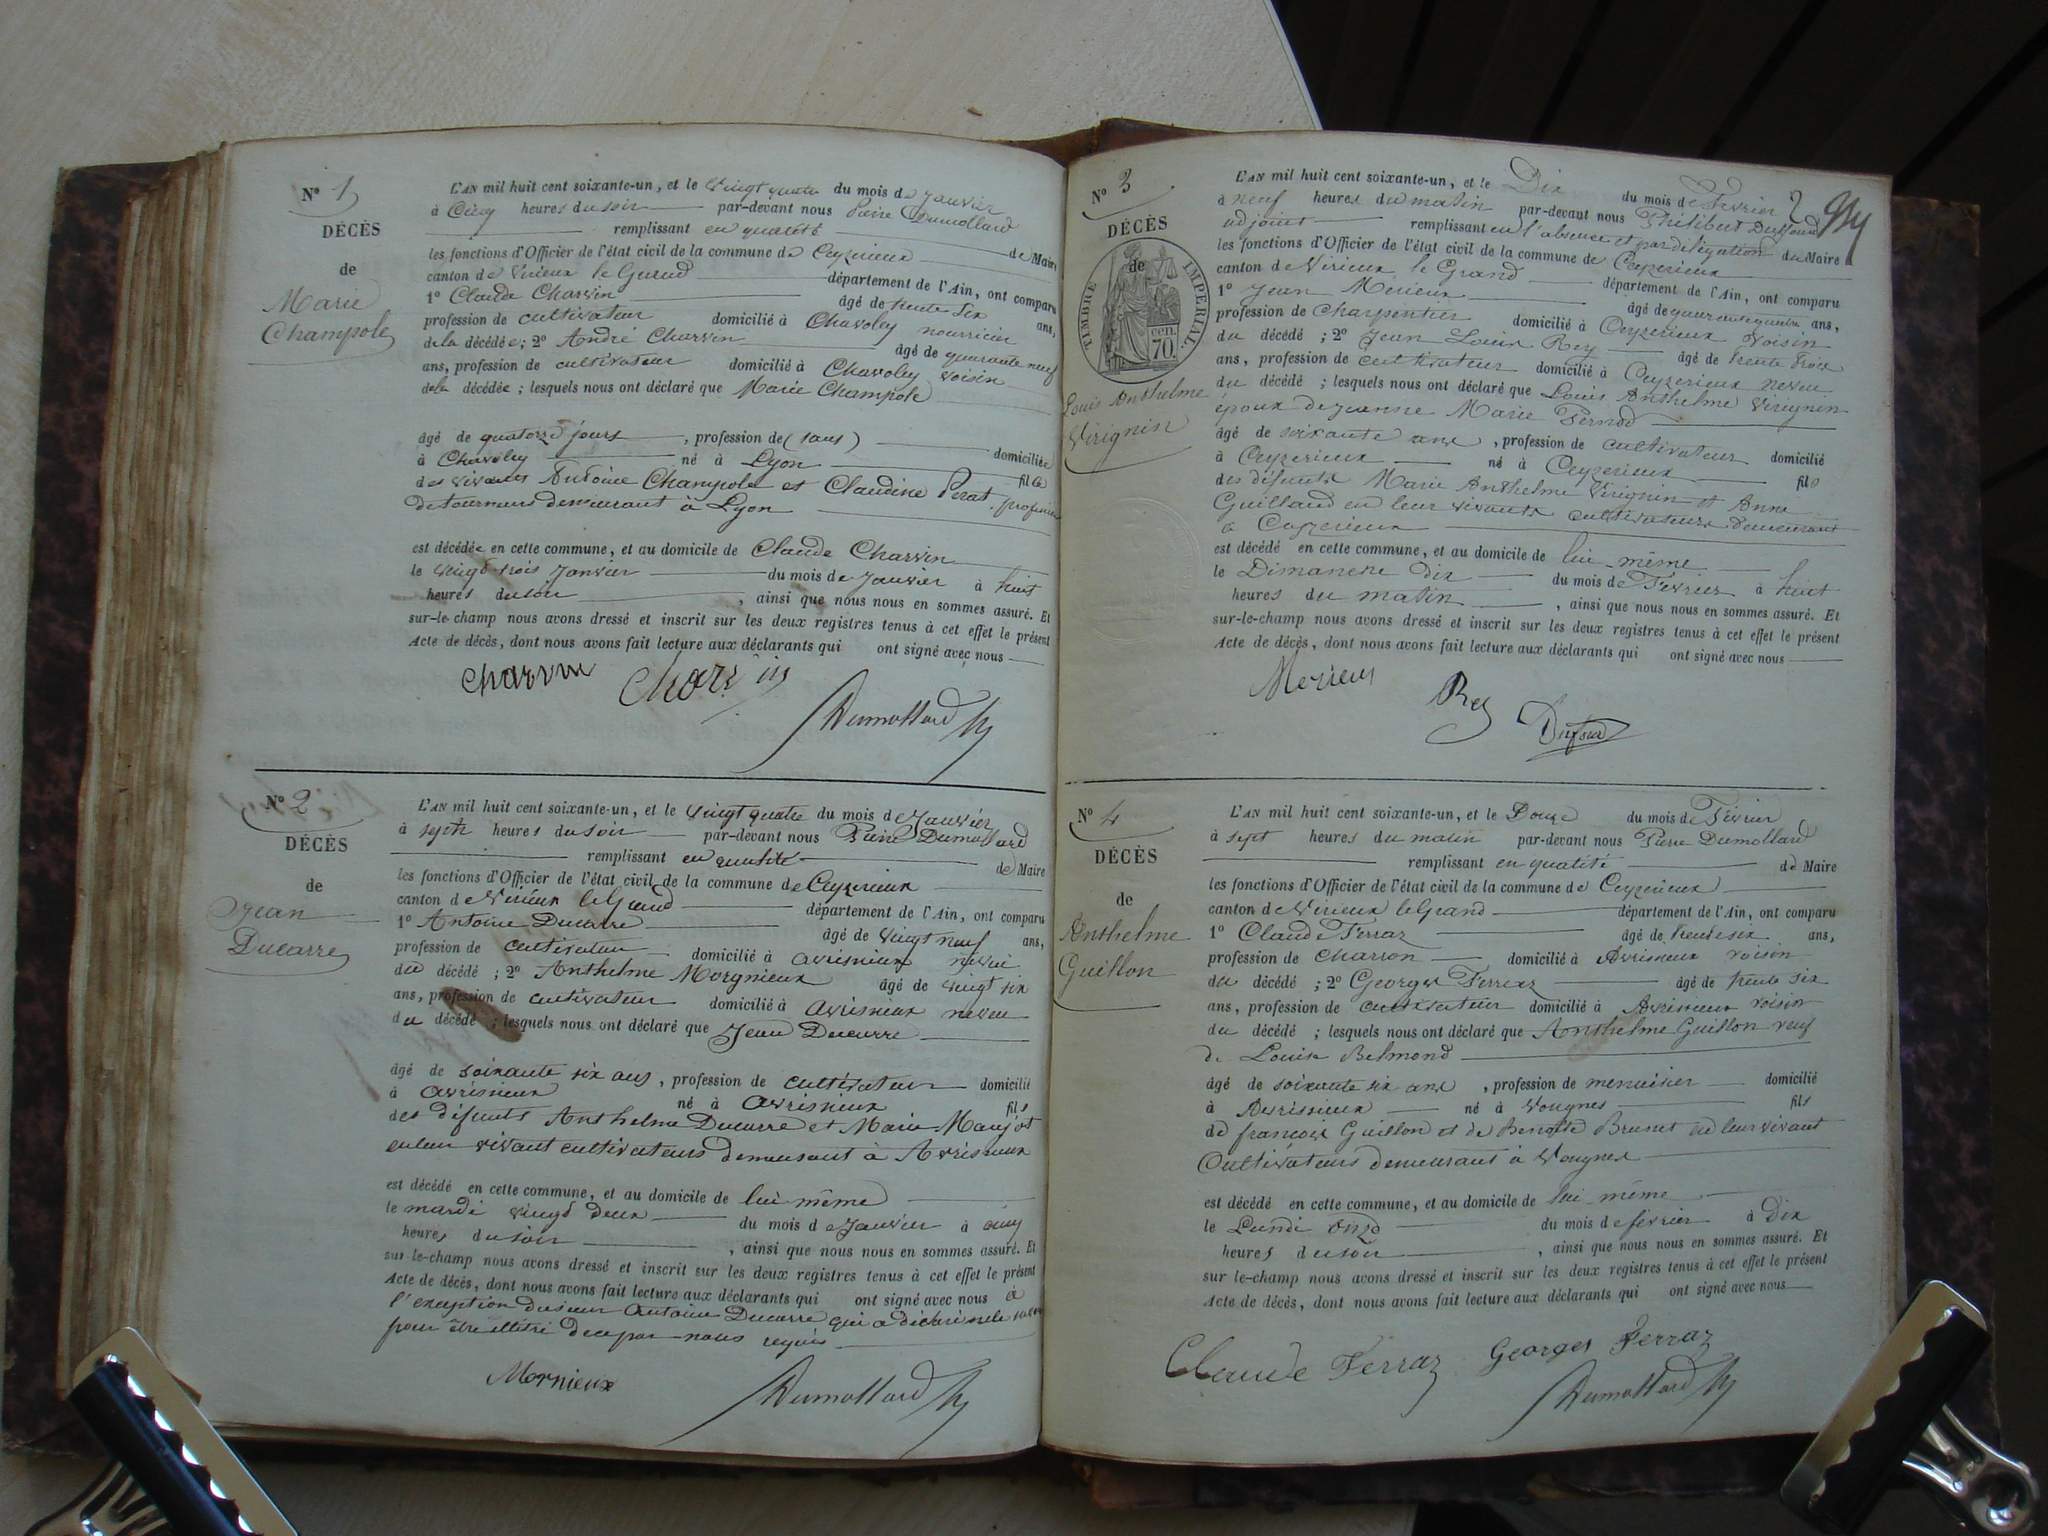 N° 1
DÉCÈS
de
Marie
Champole
L'AN mil huit cent soixante-un, et le Vingt quatre du mois de Janvier
à Cinq heures du soir par-devant nous Pierre Dumollard
remplissant en qualité de Maire
les fonctions d'Officier de l'état civil de la commune de Ceyzerieux
canton de Virieux le Grand département de l'Ain, ont comparu
1° Claude Charvin âgé de trente six ans,
profession de cultivateur domicilié à Chavoley nourricier
de la décédée; 2° André Charvin âgé de quarante neuf
ans, profession de cultivateur domicilié à Chavoley voisin
de la décédée; lesquels nous ont déclaré que Marie Champole
âgé de quatorze jours, profession de (sans) domiciliée
à Chavoley né à Lyon fille
des vivants Antoine Champole et Claudine Perat, profession
de tourneurs demeurant à Lyon
est décédée en cette commune, et au domicile de Claude Charvin
le vingt trois Janvier du mois de Janvier à huit
heures du soir, ainsi que nous nous en sommes assuré. Et
sur-le-champ nous avons dressé et inscrit sur les deux registres tenus à cet effet le présent
Acte de décès, dont nous avons fait lecture aux déclarants qui ont signé avec nous
Charvin Charvin
Dumollard
N° 2
DÉCÈS
de
Jean
Ducarre
L'AN mil huit cent soixante-un, et le vingt quatre du mois de Janvier
à sept heures du soir par-devant nous Pierre Dumollard
remplissant en qualité de Maire
les fonctions d'Officier de l'état civil de la commune de Ceyzerieux
canton de Virieux le Grand département de l'Ain, ont comparu
1° Antoine Ducarre âgé de vingt neuf ans,
profession de cultivateur domicilié à avrisieux neveu
du décédé; 2° Anthelme Morgnieux âgé de vingt six
ans, profession de cultivateur domicilié à avrisieux neveu
du décédé; lesquels nous ont déclaré que Jean Ducarre
âgé de soixante six ans, profession de cultivateur domicilié
à avrisieux né à avrisieux fils
des défunts Anthelme Ducarre et Marie Maujot
en leur vivant cultivateurs demeurant à Avrisieux
est décédé en cette commune, et au domicile de lui même
le mardi vingt deux du mois de Janvier à cinq
heures du soir, ainsi que nous nous en sommes assuré. Et
sur-le-champ nous avons dressé et inscrit sur les deux registres tenus à cet effet le présent
Acte de décès, dont nous avons fait lecture aux déclarants qui ont signé avec nous à
l'exception du sieur Antoine Ducarre qui a déclaré ne le savoir
pour être illétré de ce par nous requis
Mornieux
Dumollard
N° 3
DÉCÈS
de
TIMBRE IMPÉRIAL
cen.
70.
Louis Anthelme
Virignin
2
L'AN mil huit cent soixante-un, et le Dix du mois de Février
à neuf heures du matin par-devant nous Philibert Dufour
adjoint remplissant en l'absence et par délégation du Maire
les fonctions d'Officier de l'état civil de la commune de Ceyzerieux
canton de Virieux le Grand département de l'Ain, ont comparu
1° Jean Merieux âgé de quarante quatre ans,
profession de Charpentier domicilié à Ceyzerieux voisin
du décédé; 2° Jean Louis Rey âgé de trente trois
ans, profession de cultivateur domicilié à Ceyzerieux neveu
du décédé; lesquels nous ont déclaré que Louis Anthelme Virignin
époux de Jeanne Marie Pernod
âgé de soixante ans, profession de cultivateur domicilié
à Ceyzerieux né à Ceyzerieux fils
des défunts Marie Anthelme Virignin et Anne
Guilland en leur vivants cultivateurs demeurant
à Ceyzerieux
est décédé en cette commune, et au domicile de lui même
le Dimanche dix du mois de Février à huit
heures du matin, ainsi que nous nous en sommes assuré. Et
sur-le-champ nous avons dressé et inscrit sur les deux registres tenus à cet effet le présent
Acte de décès, dont nous avons fait lecture aux déclarants qui ont signé avec nous
Merieux Rey Dufour
N° 4
DÉCÈS
de
Anthelme
Guillon
L'AN mil huit cent soixante-un, et le Douze du mois de Février
à sept heures du matin par-devant nous Pierre Dumollard
remplissant en qualité de Maire
les fonctions d'Officier de l'état civil de la commune de Ceyzerieux
canton de Virieux le Grand département de l'Ain, ont comparu
1° Claude Ferraz âgé de trente six ans,
profession de Charron domicilié à Avrissieux voisin
du décédé; 2° Georges Ferraz âgé de trente six
ans, profession de cultivateur domicilié à Avrissieux voisin
du décédé; lesquels nous ont déclaré que Anthelme Guillon veuf
de Louise Belmond
âgé de soixante six ans, profession de menuisier domicilié
à Avrissieux né à Vougnes fils
de françois Guillon et de Benoite Brunet en leur vivant
Cultivateurs demeurant à Vougnes
est décédé en cette commune, et au domicile de lui même
le Lundi onze du mois de février à Dix
heures du soir, ainsi que nous nous en sommes assuré. Et
sur le-champ nous avons dressé et inscrit sur les deux registres tenus à cet effet le présent
Acte de décès, dont nous avons fait lecture aux déclarants qui ont signé avec nous
Claude Ferraz Georges Ferraz
Dumollard